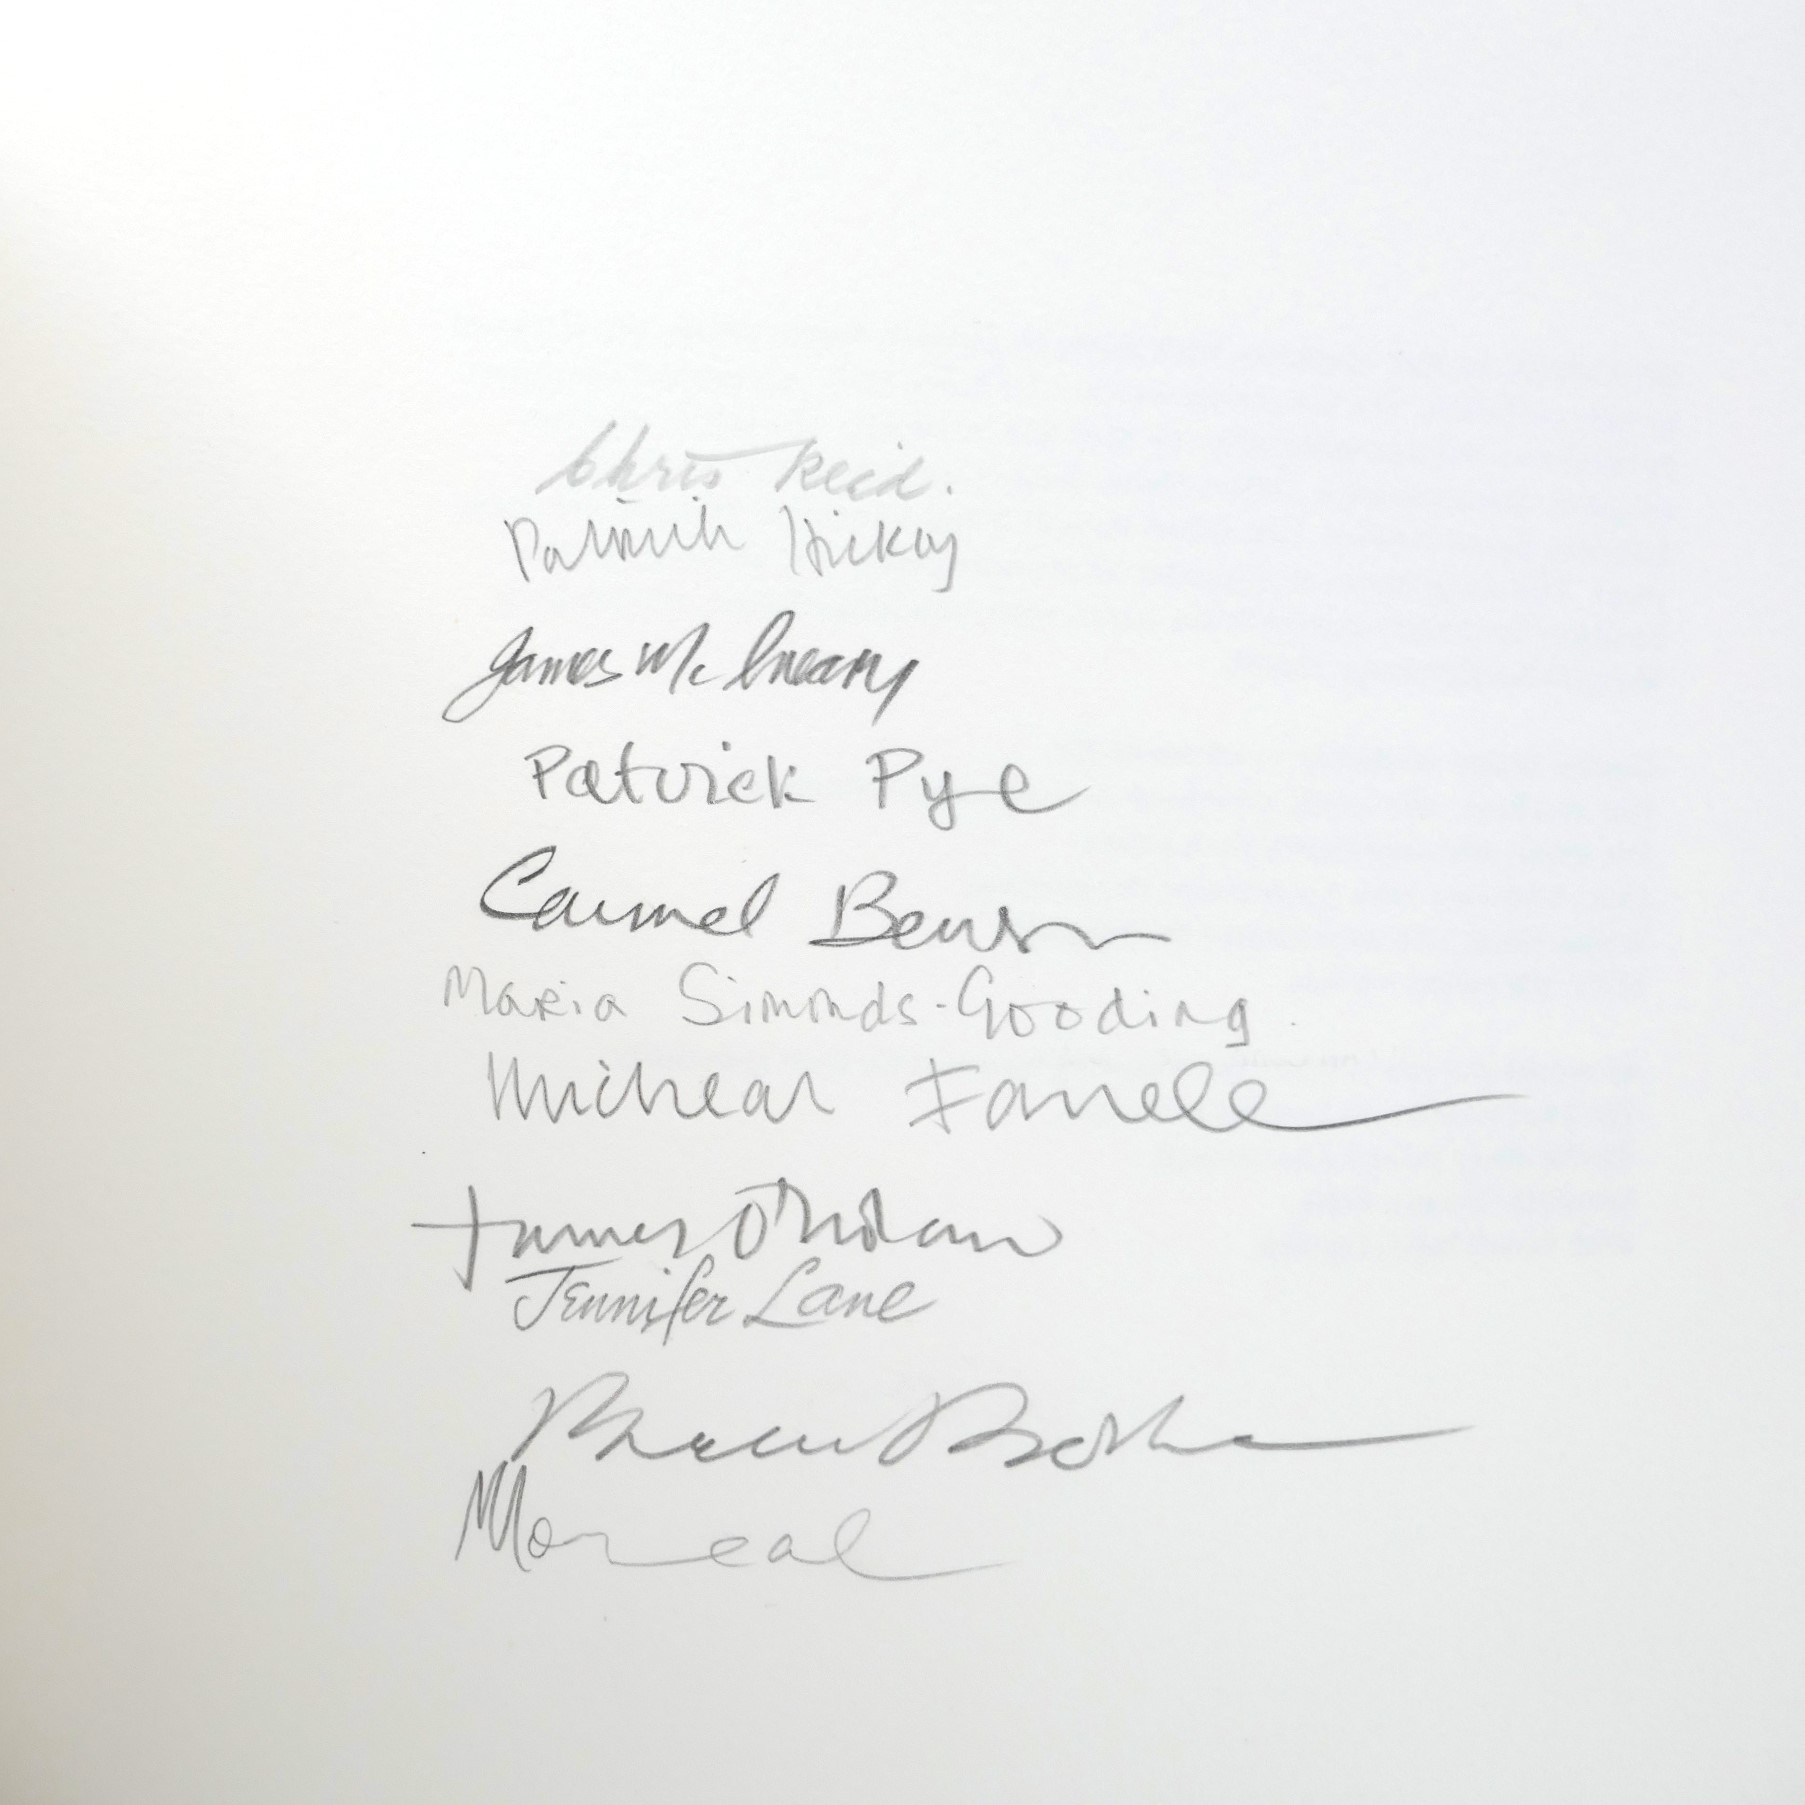 Chris Reid.
Patrick Hickey
James McCreary
Patrick Pye
Carmel Benson
Maria Simonds-Gooding.
Micheal Farrell
James O'Nolan
Jennifer Lane
Brian Bourke